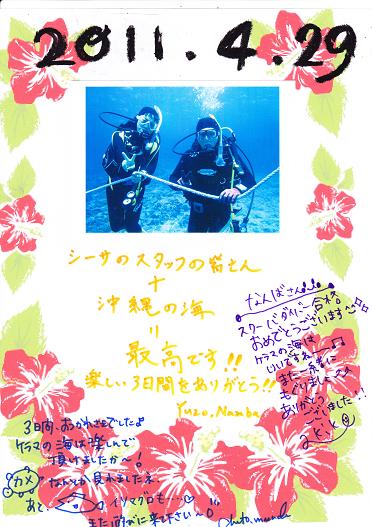 2011.4.29
シーサのスタッフの皆さん
+
沖縄の海
=
最高です!!
楽しい3日間をありがとう!!
Yuzo.Namba
なんばさん
スクーバダイバー合格
おめでとうございます
ケラマの海は
いいですね
また一緒に
もぐりましょう
ありがとう
ございました!!
akiko
3日間、おつかれさまでした♪
ケラマの海は楽しんで
頂けましたか~!
カメ なんかも見れましたネ
あと、イソマグロも…
また遊びに来て下さい~